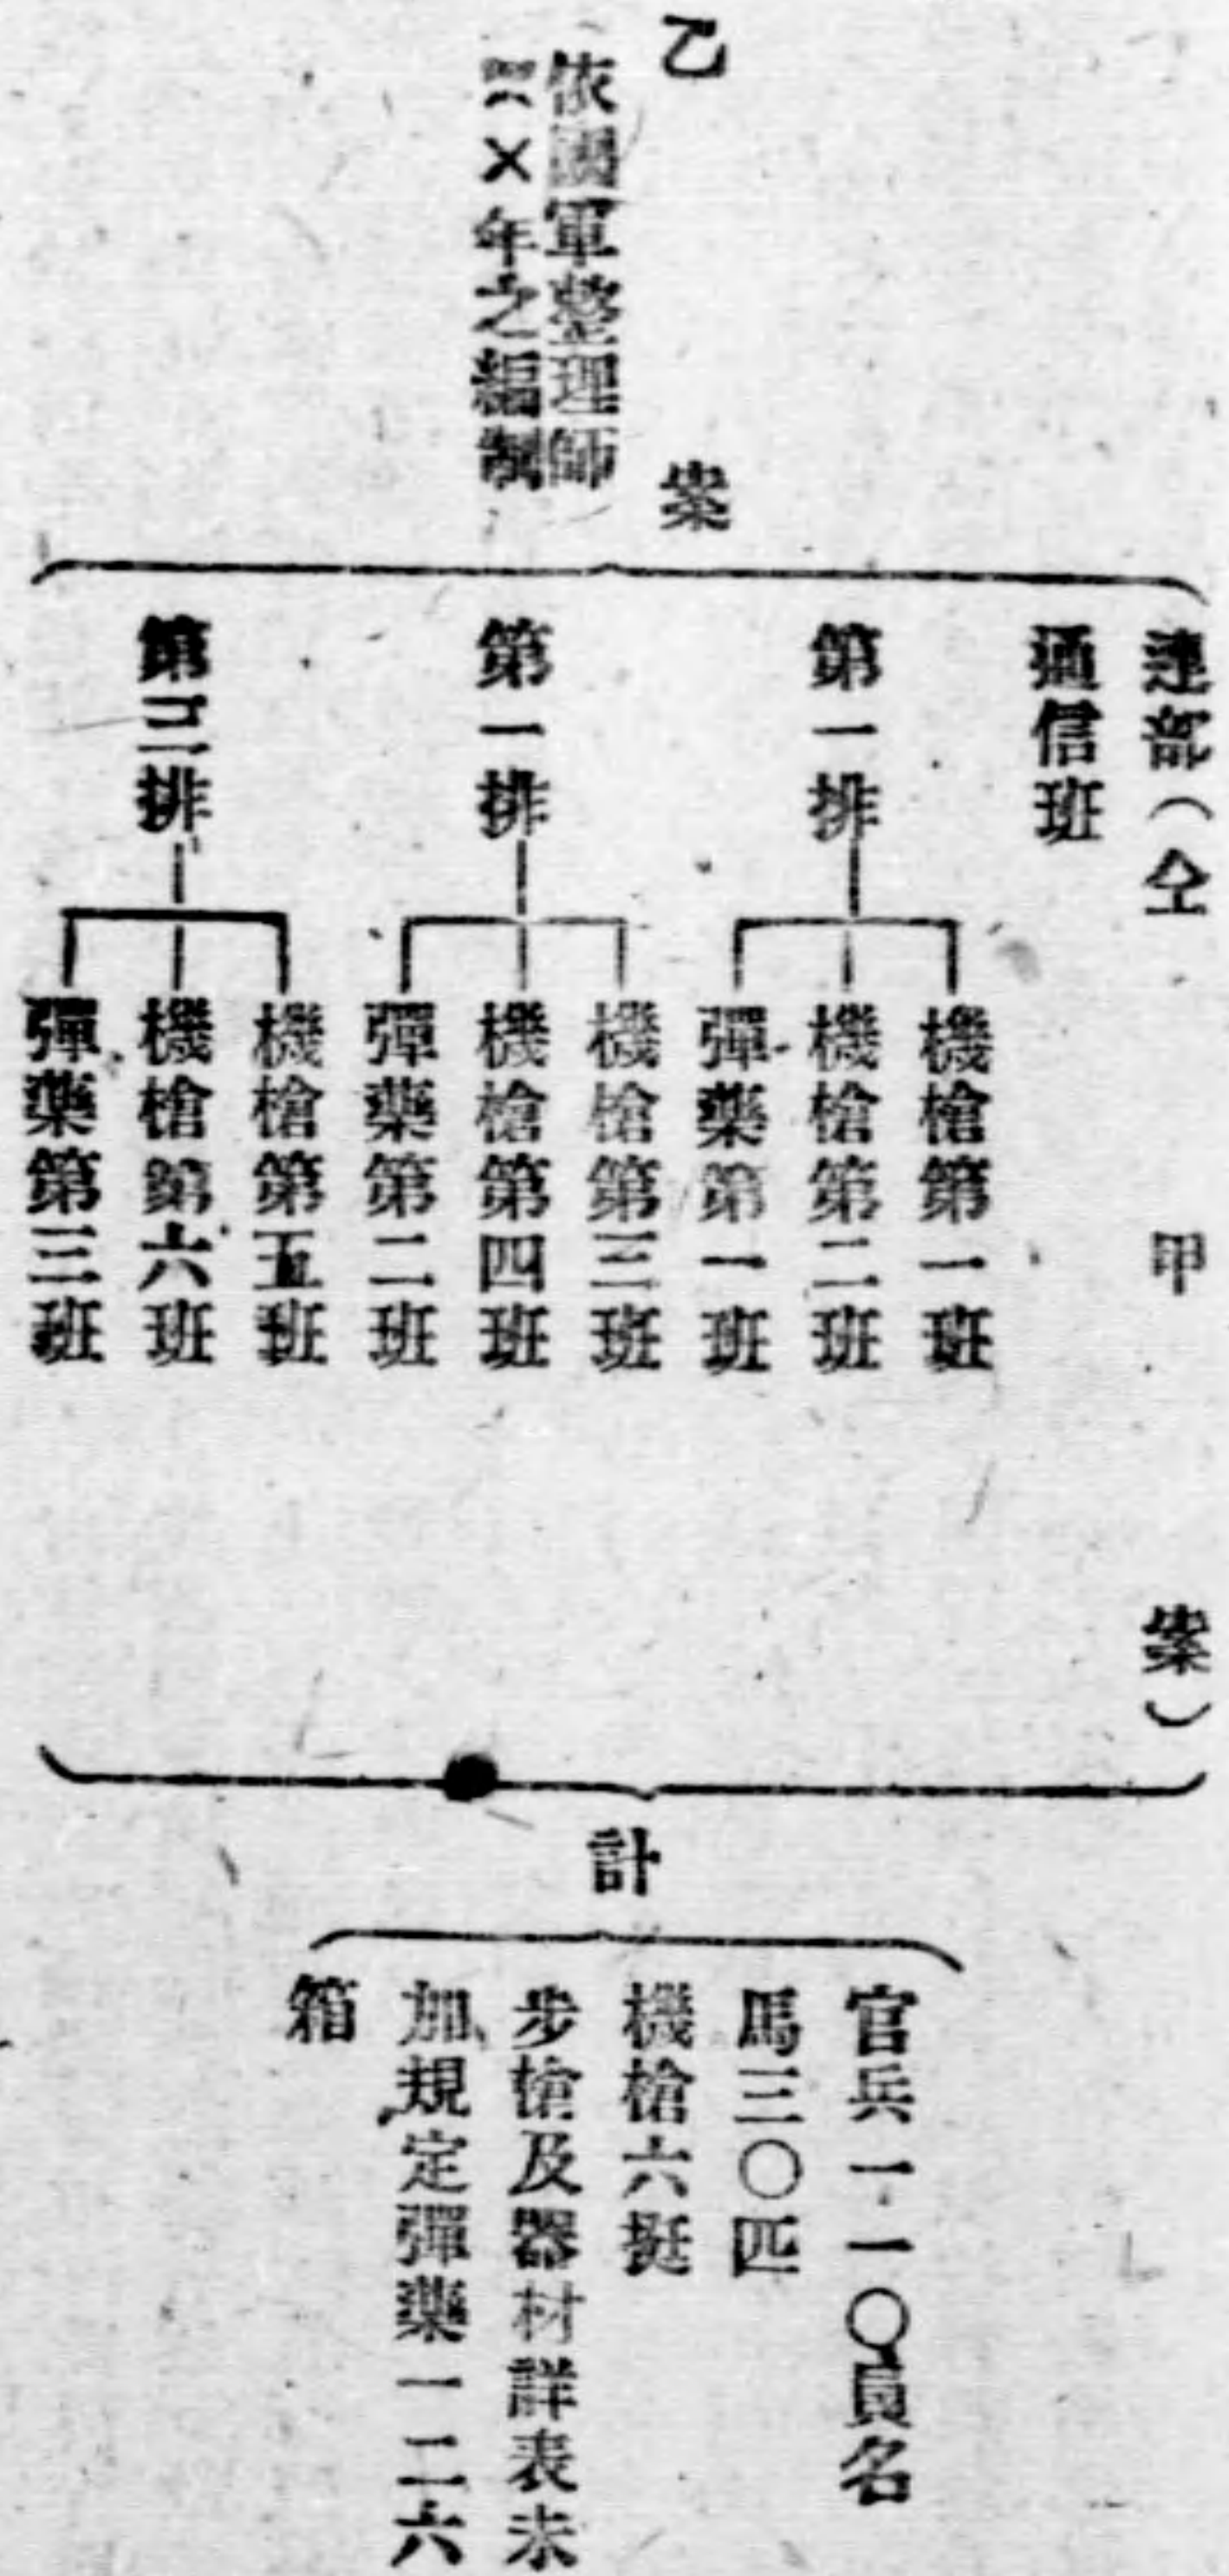 乙案
依國軍整理師
××年之編制
連部（仝甲案）
通信班
第一排
機槍第一班
機槍第二班
彈藥第一班
第一排
機槍第三班
機槍第四班
彈藥第二班
第三排
機槍第五班
機槍第六班
彈藥第三班
計
官兵一一〇員名
馬三〇匹
機槍六挺
步槍及器材詳表未
加規定彈藥一二六
箱